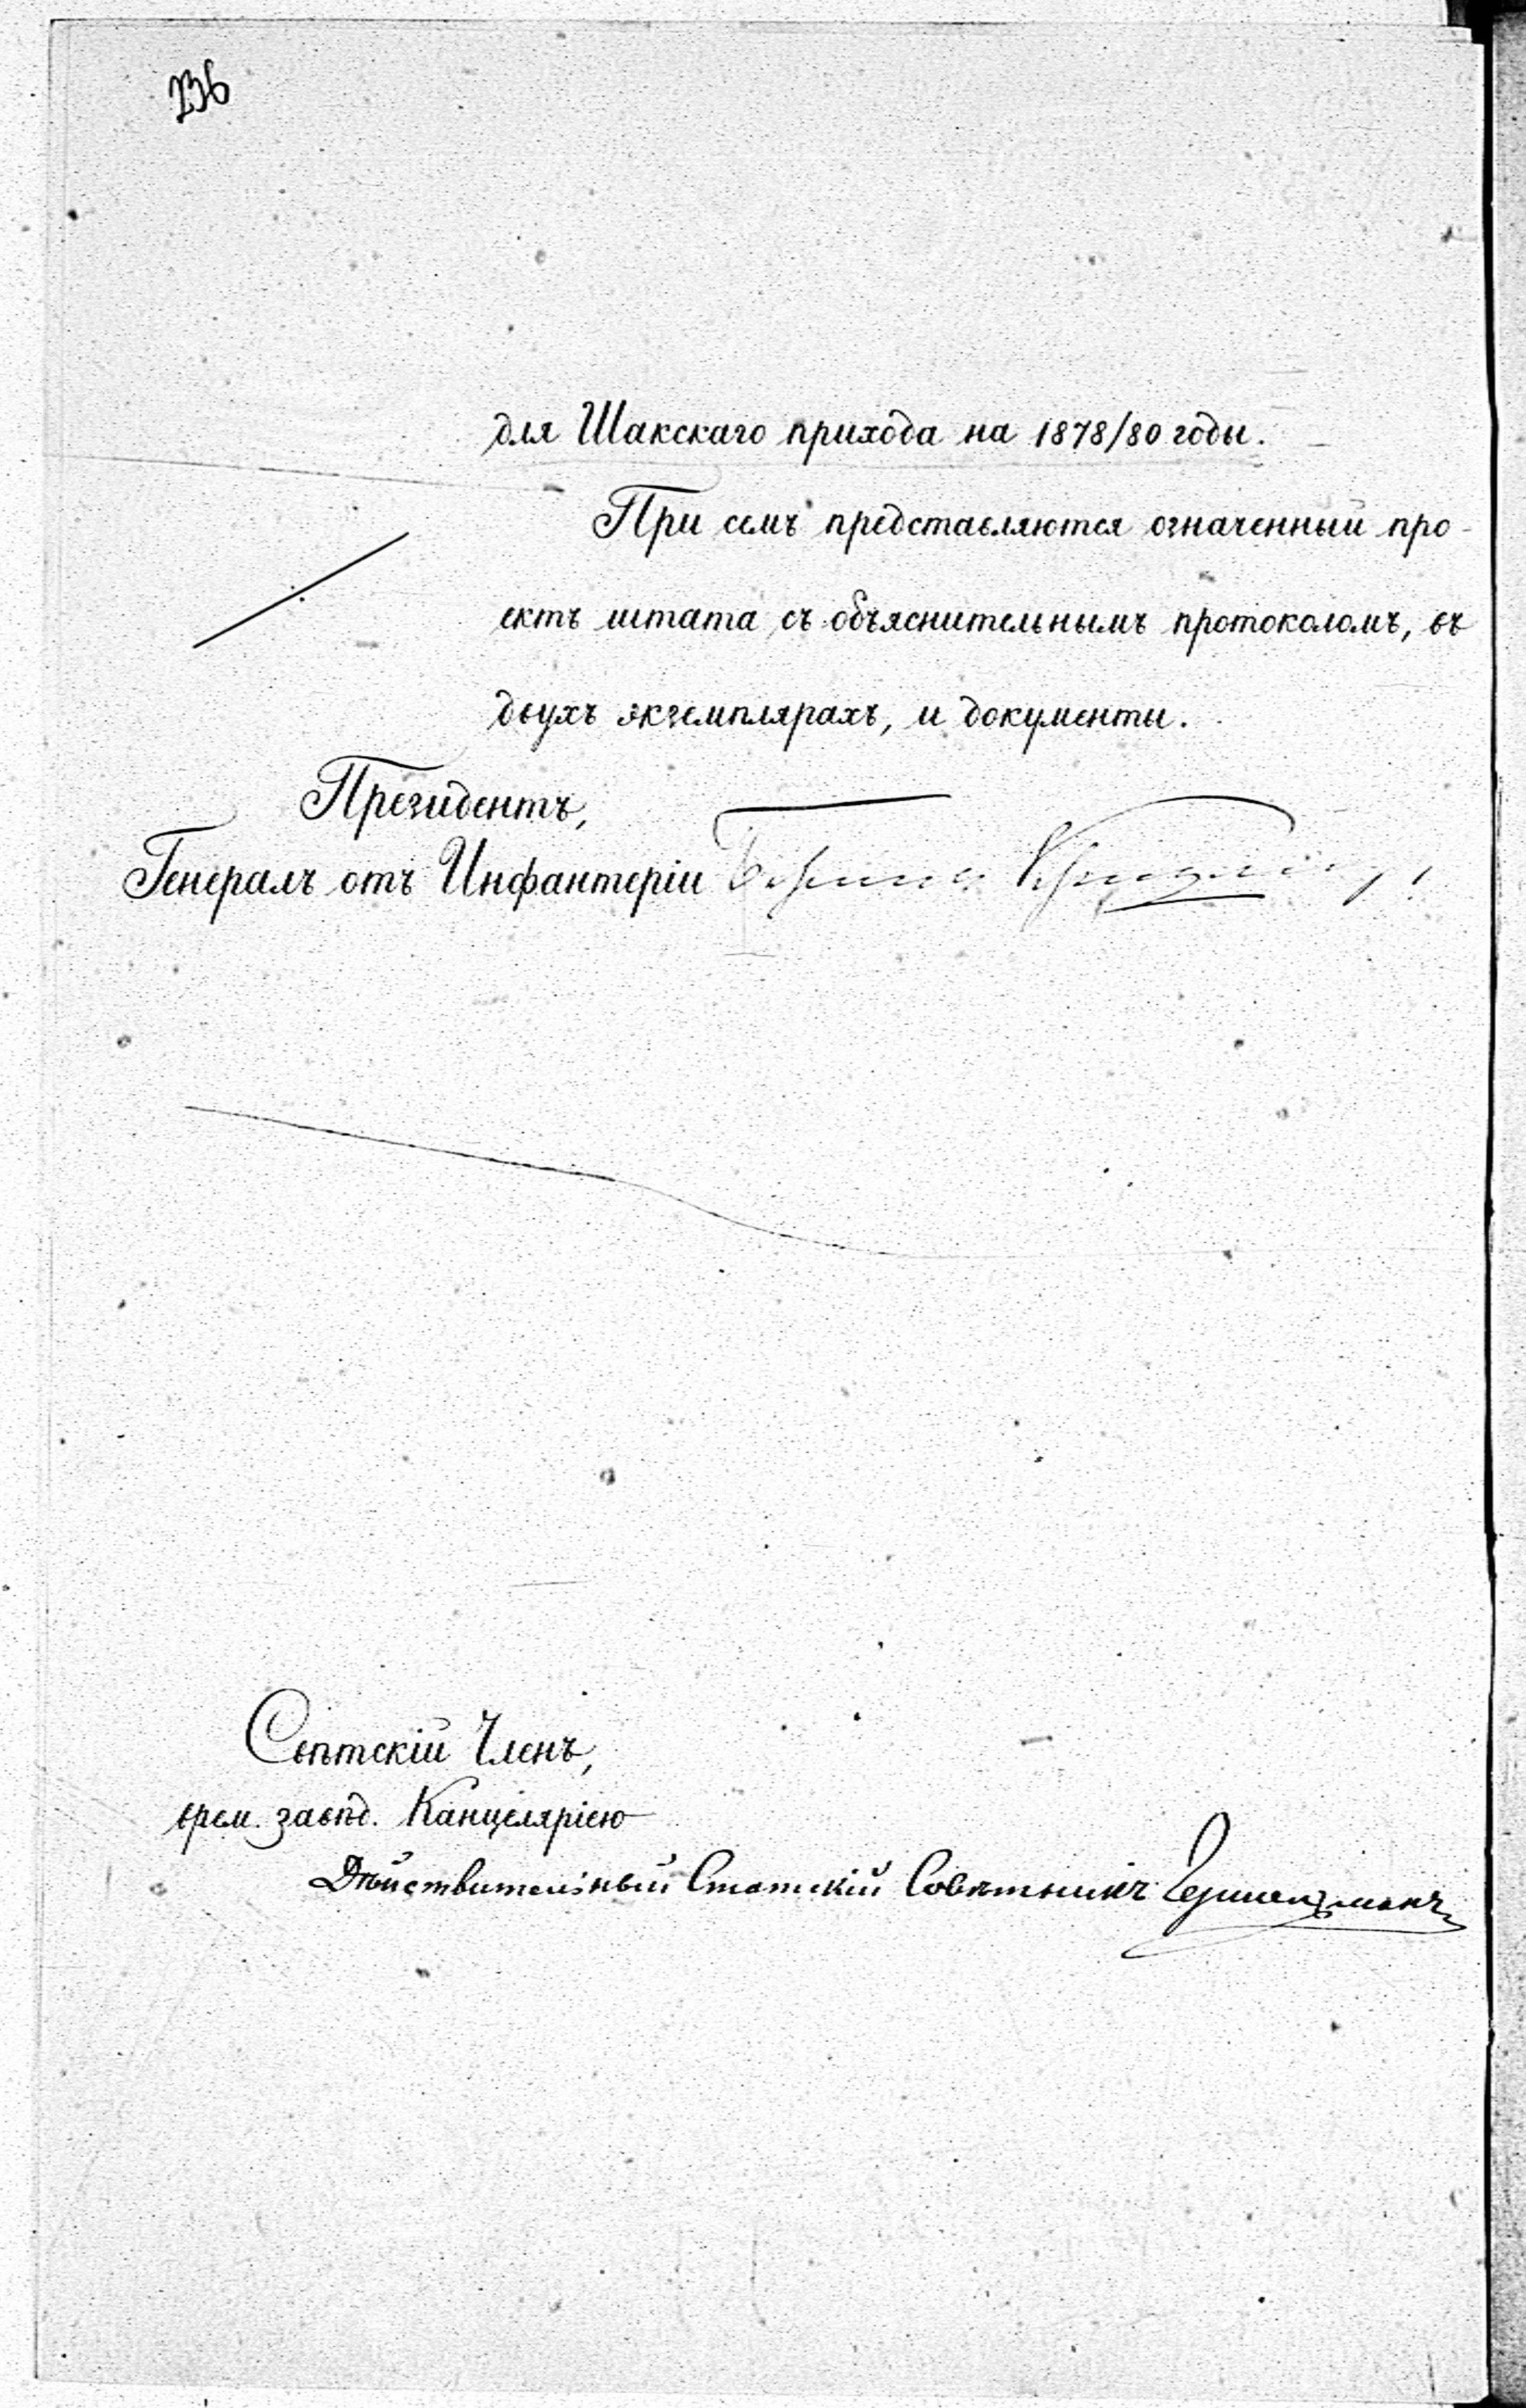 236
для Шакскаго прихода на 1878/80 годы.
При семъ представляются означенный про-
ектъ штата съ объяснительнымъ протоколомъ, въ
двухъ экземплярахъ, и документы.
Президентъ,
Генералъ отъ Инфантеріи Баронъ
Свѣтскій Членъ,
врем. завѣд. Канцеляріею
Дѣйствительный Статскій Совѣтникъ